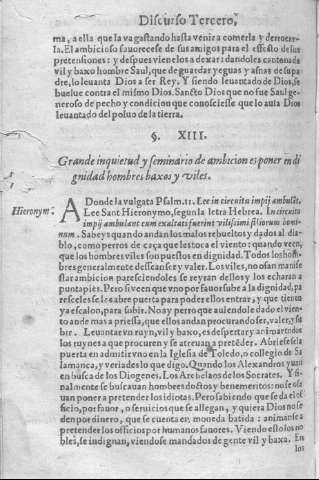 Discurso Tercero,
ma, a ella que la va gastando hasta venir a comerla y derrocar-
la. El ambicioso fauorecese de sus amigos para el effecto de sus
pretensiones: y despues vienelos a dexar: dandoles cantonada
vil y baxo hombre Saul, que de guardar yeguas y asnas de su pa-
dre, lo leuanta Dios a ser Rey. Y siendo leuantado de Dios, se
buelue contra el mismo Dios. Sancto Dios que no fue Saul ge-
neroso de pecho y condicion que conosciesse que lo auia Dios
leuantado del poluo de la tierra.
§. XIII.
Grande inquietud y seminario de ambicion es poner en di
gnidad hombres baxos y viles.
Hieronym.
ADonde la vulgata Psalm. 11. Lee in circuitu impij ambulāt.
Lee Sant Hieronymo, segun la letra Hebrea. In circuitu
impij ambulant cum exaltati fuerint vilissimi filiorum homi-
num. Sabeys quando andan los malos rebueltos y dados al dia-
blo, como perros de caça que les toca el viento: quando veen,
que los hombres viles son puestos en dignidad. Todos los hom-
bres generalmente dessean ser y valer. Los viles, no osan manife
star ambicion paresciendoles se reyran dellos y los echaran a
puntapies. Pero si veen que vno por fauor sube a la dignidad, pa
resceles se les abre puerta para poder ellos entrar, y que tienen
ya escalon, para subir. No ay perro que auiendole dado el vien-
to ande mas a priessa, que ellos andan procurando ser, valer, y su
bir. Leuantar vn ruyn, vil y baxo, es despertar y animar todos
los ruynes a que procuren y se atreuan a pretēder. Abriese sela
puerta en admitir vno en la Iglesia de Toledo, o collegio de Sa
lamanca, y veriades lo que digo. Quando los Alexandros yuan
en busca de los Diogenes. Los Archelaos de los Socrates. Y fi-
nalmente se buscauan hombres doctos y benemeritos: no se osa
uan poner a pretender los idiotas. Pero sabiendo que se da el of
ficio, por fauor, o seruicios que se allegan, y quiera Dios no se
den por dinero, que se cuenta en moneda batida: animanse a
pretender los officios por humanos fauores. Viendo esto los no
bles, se indignan, viendose mandados de gente vil y baxa. En
los